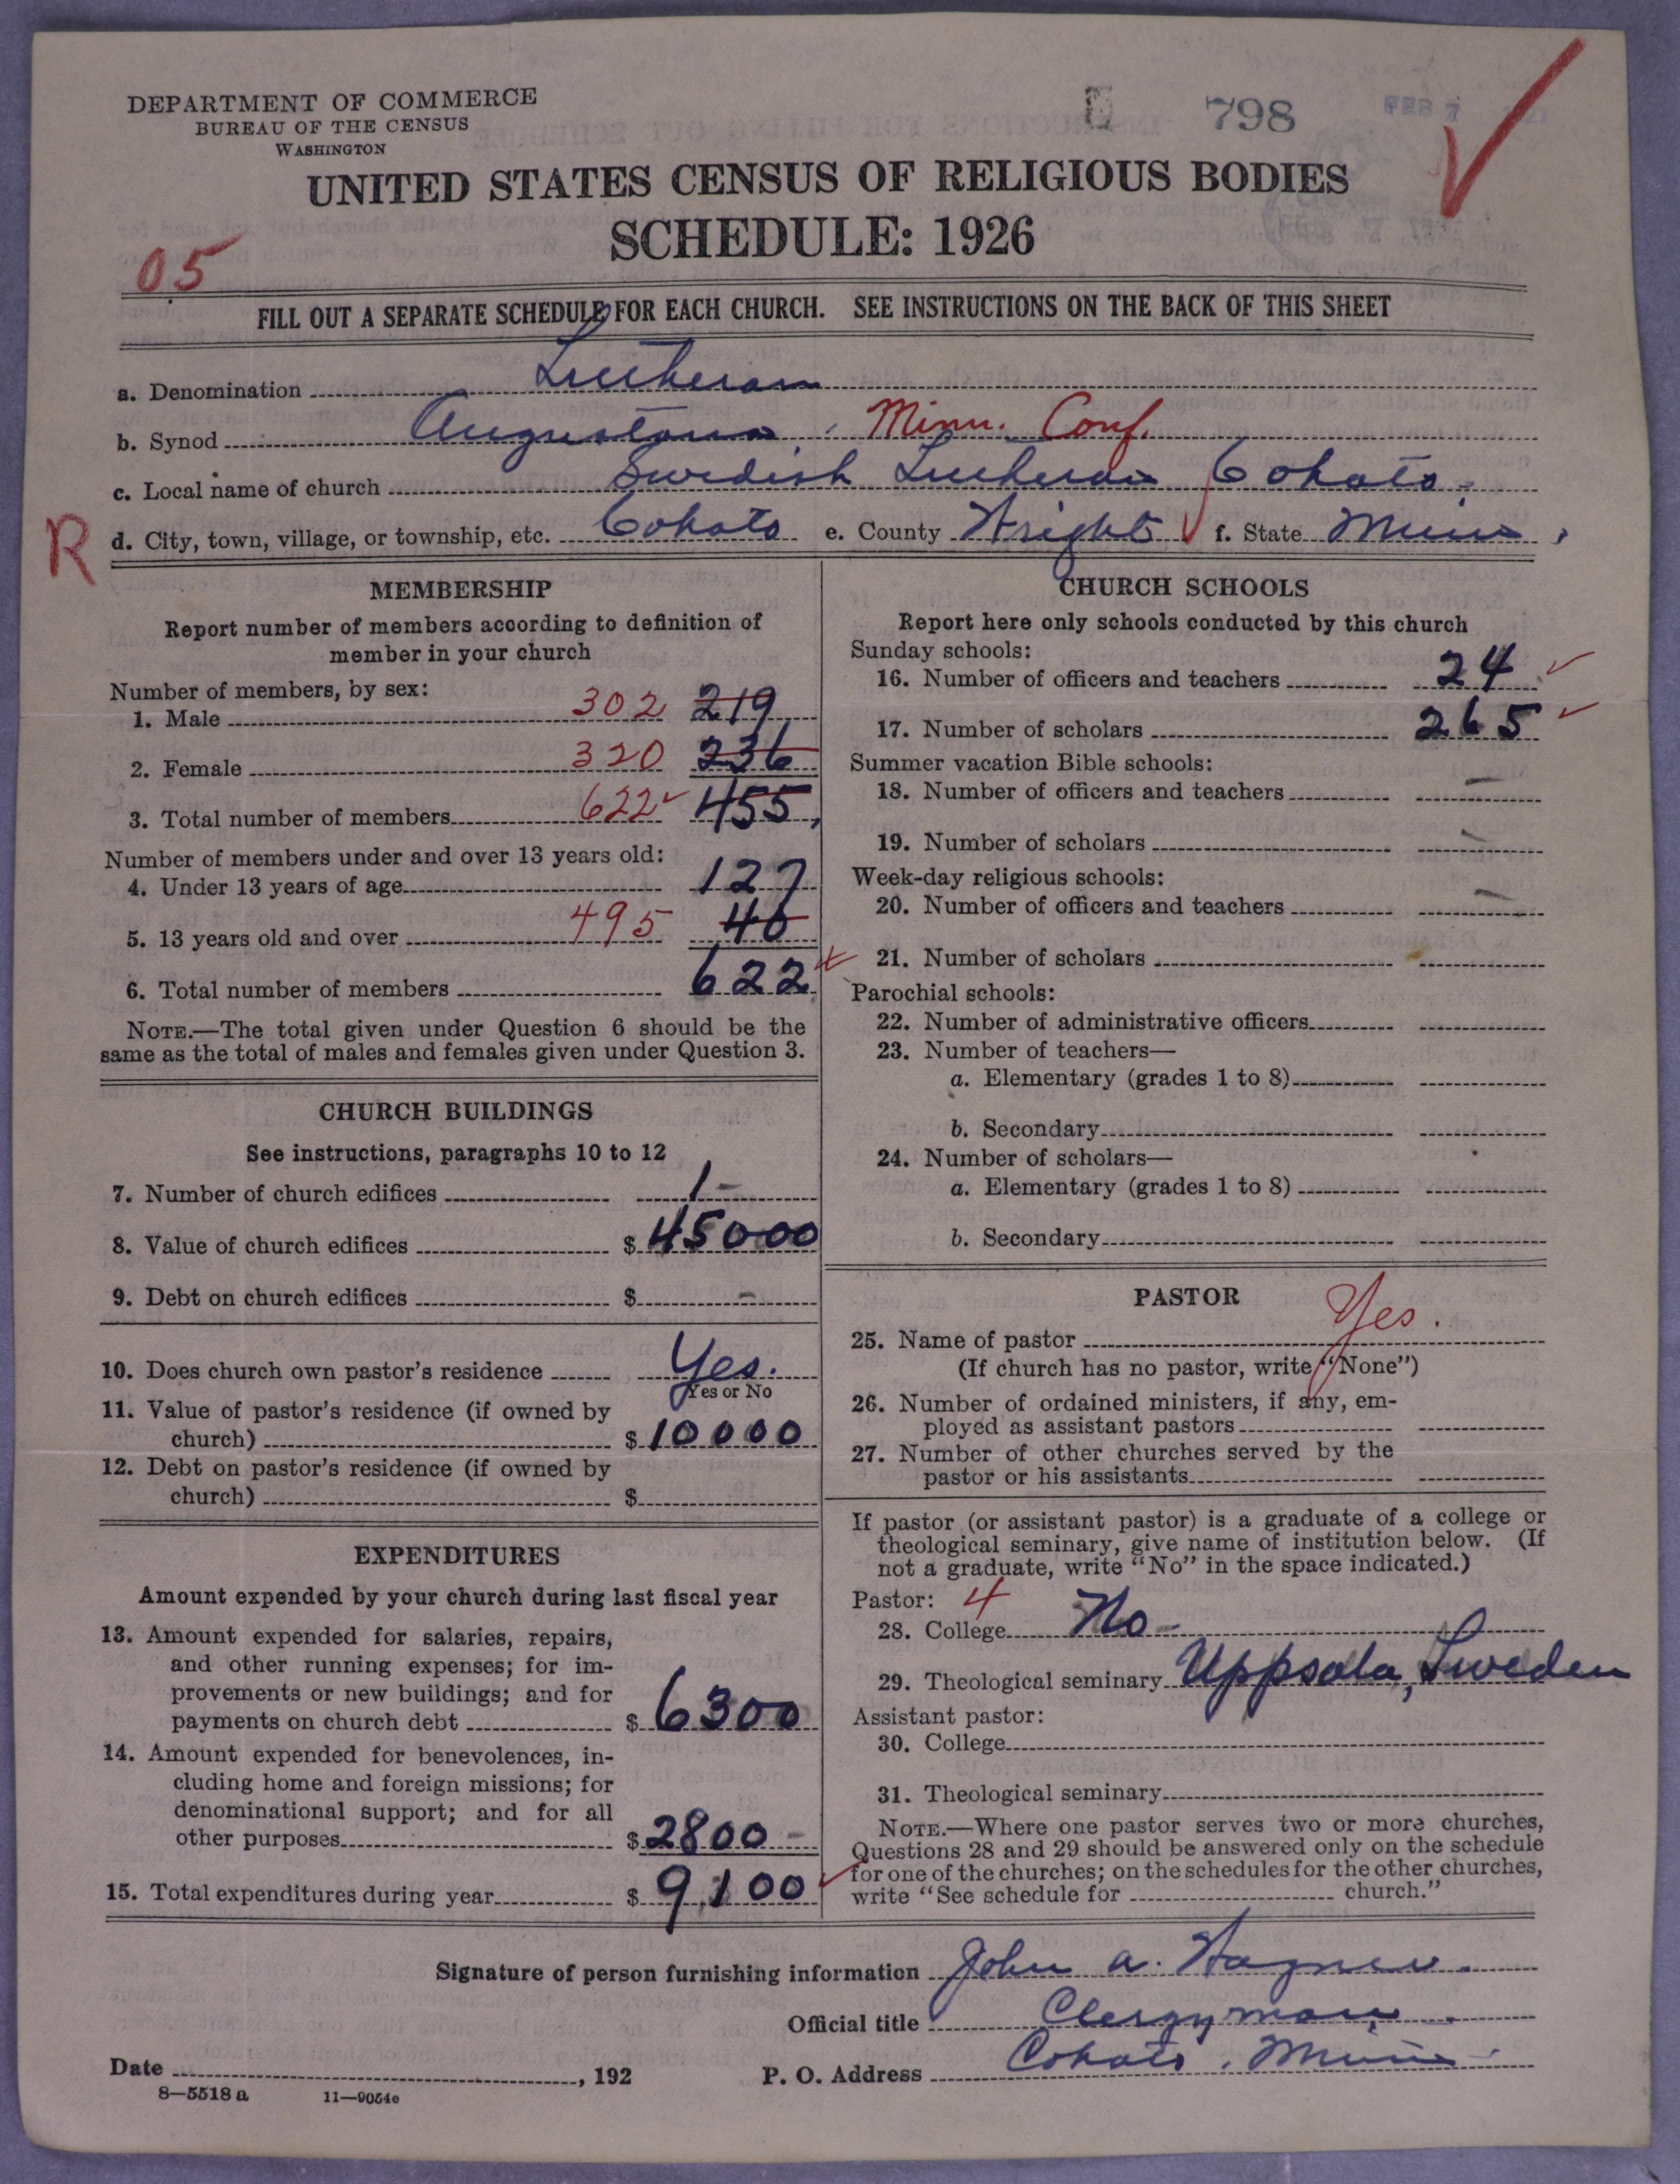 DEPARTMENT OF COMMERCE
BUREAU OF THE CENSUS
WASHINGTON
798
FEB 7
UNITED STATES CENSUS OF RELIGIOUS BODIES
SCHEDULE: 1926
05
FILL OUT A SEPARATE SCHEDULE FOR EACH CHURCH. SEE INSTRUCTIONS ON THE BACK OF THIS SHEET
a. Denomination Lutheran
b. Synod Augustana Minn. Conf.
c. Local name of church Swedish Lutheran Cokato.
R d. City, town, village, or township, etc. Cokato e. County Wright f. State Minn.
MEMBERSHIP
Report number of members according to definition of
member in your church
Number of members, by sex:
1. Male 302 219
2. Female 320 236
3. Total number of members 622 455
Number of members under and over 13 years old:
4. Under 13 years of age 127
5. 13 years old and over 495 40
6. Total number of members 622
NOTE.—The total given under Question 6 should be the
same as the total of males and females given under Question 3.
CHURCH BUILDINGS
See instructions, paragraphs 10 to 12
7. Number of church edifices 1-
8. Value of church edifices $45000
9. Debt on church edifices $ -
10. Does church own pastor's residence Yes.
Yes or No
11. Value of pastor's residence (if owned by
church) $10000
12. Debt on pastor's residence (if owned by
church) $
EXPENDITURES
Amount expended by your church during last fiscal year
13. Amount expended for salaries, repairs,
and other running expenses; for im-
provements or new buildings; and for
payments on church debt $6300
14. Amount expended for benevolences, in-
cluding home and foreign missions; for
denominational support; and for all
other purposes $2800-
15. Total expenditures during year $9100
CHURCH SCHOOLS
Report here only schools conducted by this church
Sunday schools:
16. Number of officers and teachers 24
17. Number of scholars 265
Summer vacation Bible schools:
18. Number of officers and teachers -
19. Number of scholars -
Week-day religious schools:
20. Number of officers and teachers -
21. Number of scholars
Parochial schools:
22. Number of administrative officers
23. Number of teachers—
a. Elementary (grades 1 to 8)
b. Secondary
24. Number of scholars—
a. Elementary (grades 1 to 8)
b. Secondary
PASTOR
25. Name of pastor Yes.
(If church has no pastor, write "None")
26. Number of ordained ministers, if any, em-
ployed as assistant pastors
27. Number of other churches served by the
pastor or his assistants
If pastor (or assistant pastor) is a graduate of a college or
theological seminary, give name of institution below. (If
not a graduate, write "No" in the space indicated.)
Pastor: 4
28. College No-
29. Theological seminary Uppsala, Sweden
Assistant pastor:
30. College
31. Theological seminary
NOTE.—Where one pastor serves two or more churches,
Questions 28 and 29 should be answered only on the schedule
for one of the churches; on the schedules for the other churches,
write "See schedule for church."
Signature of person furnishing information John A.
Official title Clergyman
Date , 192 P. O. Address Cokato, Minn.
8—5518 a 11—9054e